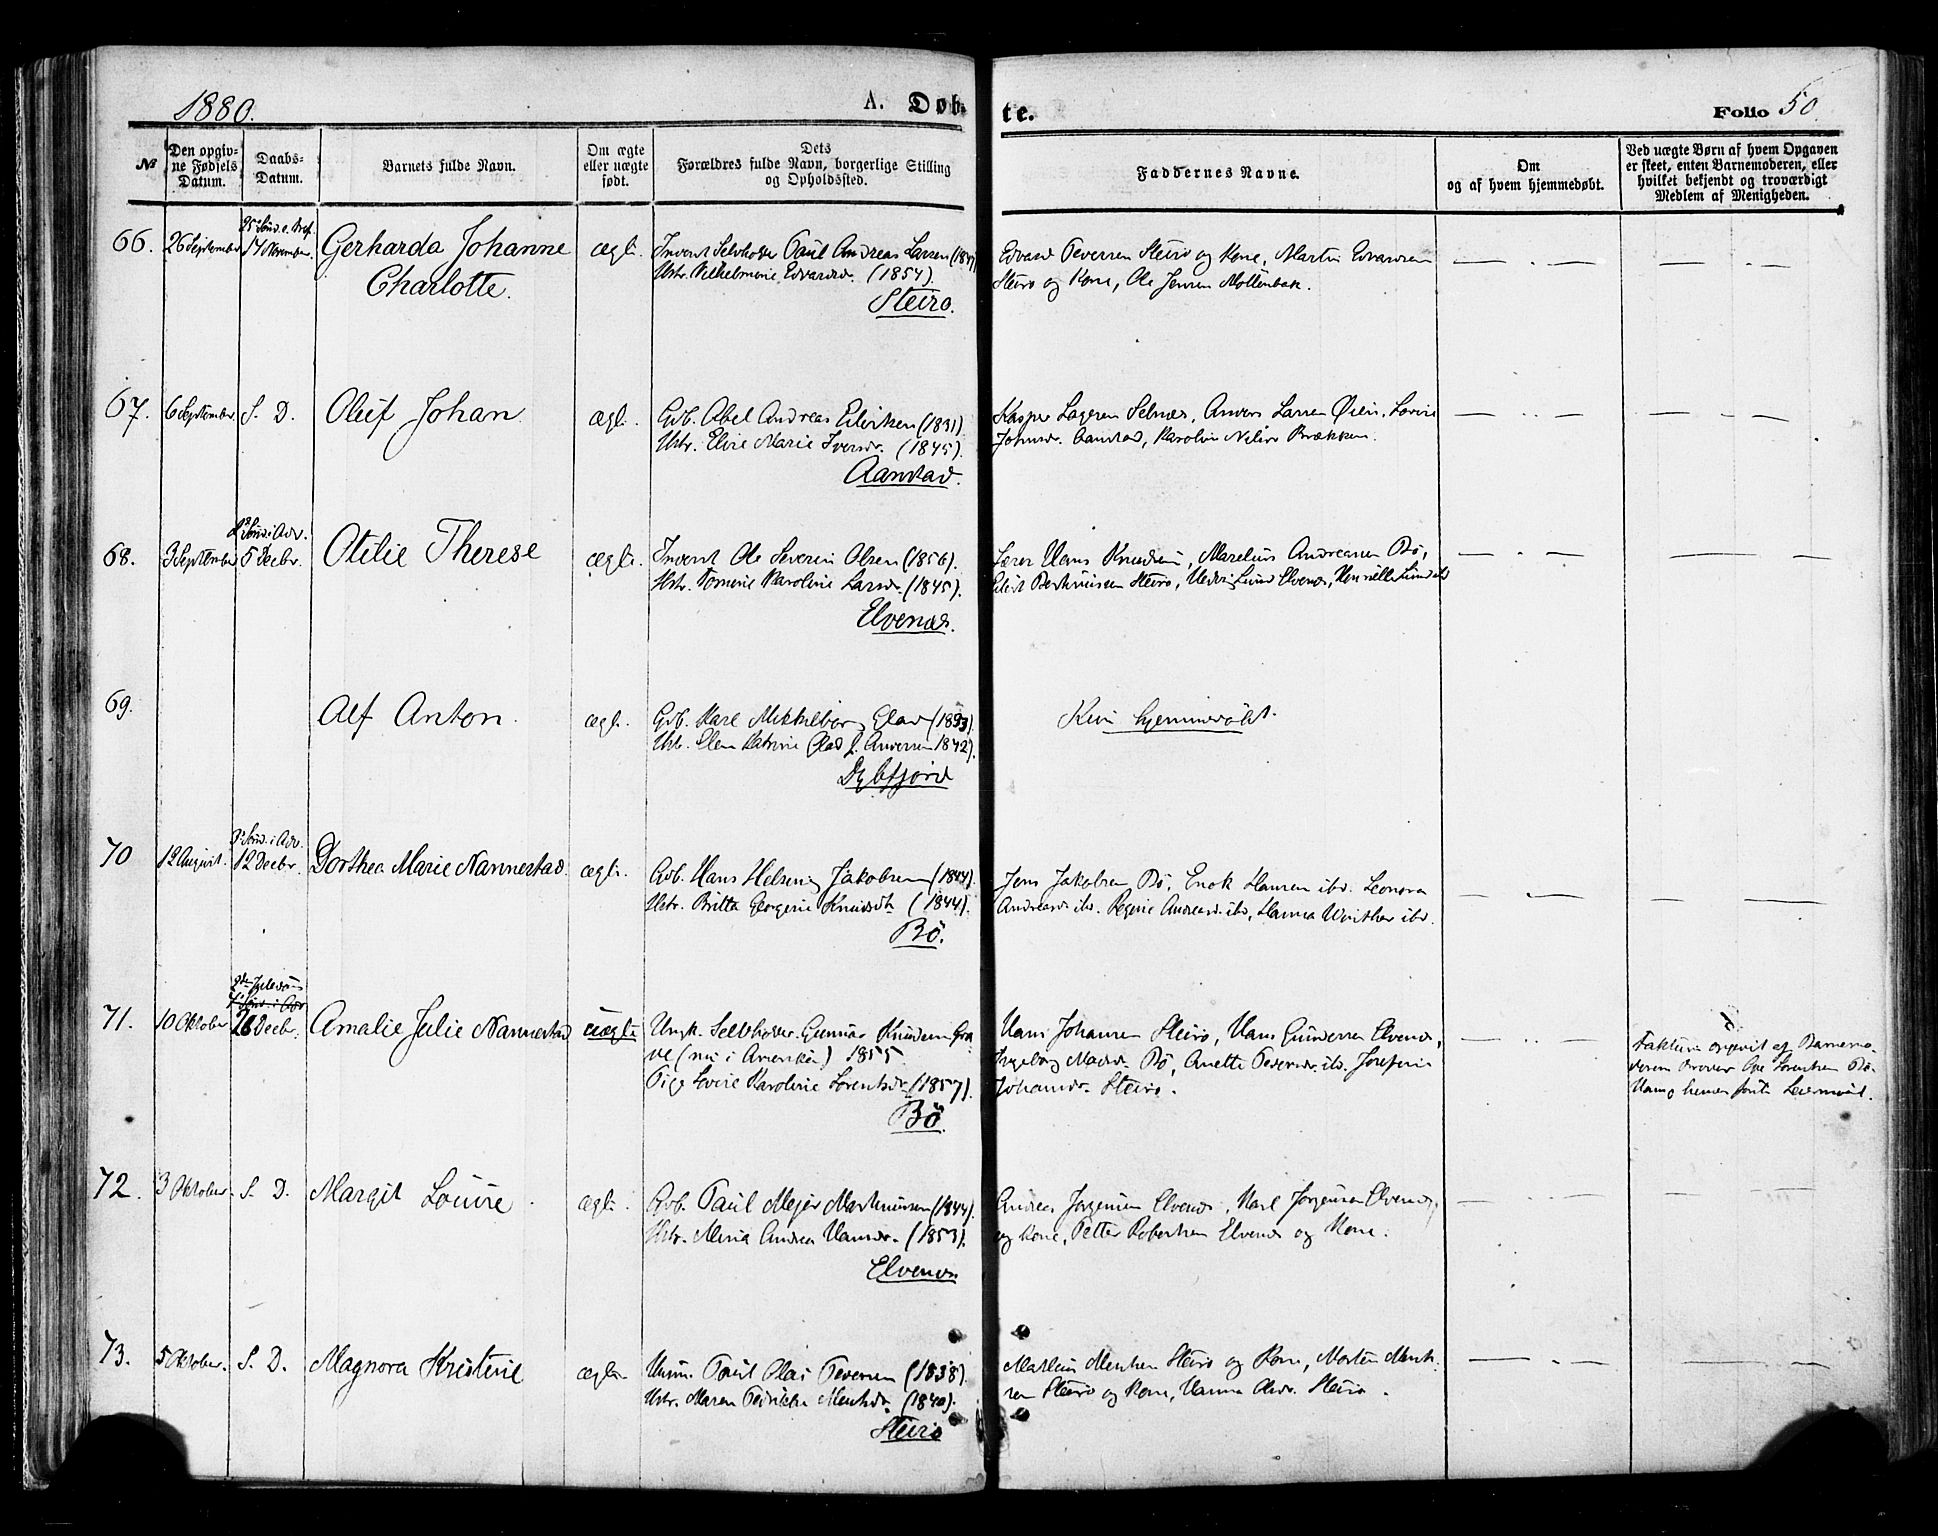 1880.
A. Døb-
te.
Folio 50.
№
Den opgiv-
ne Fødsels
Datum.
Daabs-
Datum.
Barnets fulde Navn.
Om ægte
eller uægte
født.
Dets
Forældres fulde Navn, borgerlige Stilling
og Opholdssted.
Faddernes Navne.
Om
og af hvem hjemmedøbt.
Ved uægte Børn af hvem Opgaven
er skeet, enten Barnemoderen, eller
hvilket bekjendt og troværdigt
Medlem af Menigheden.
66. 26 September
14 November.
Gerharda Johanne
Charlotte.
ægte.
Inderst Selvholder Paul Andreas Larsen
Hstr. Vilhelmine Edvardsd. (1854).
Steiro.
Edvard Pedersen Steiro og Kone, Martin Edvardsen
Steiro og Kone, Ole Jensen Mollenbak.
67. 6 September S. D. Oluf Johan ægte.
Gdb. Abel Andreas (1831).
Hstr. Marie Iversdr. (1845).
Aanstad.
Kasper Selnæs, Anders Larsen Øien,
Aanstad, Karoline
68. 3 September
2 Sønd. i Adv.
5 Decbr.
Otilie Therese ægte.
Inderst Ole Severin Olsen (1856).
Hstr. Karoline Larsdr. (1845).
Elvenæs.
Lærer Hans Knudsen, Marelius Andreasen Bø,
Steiro, Lund Elvenæs,
69. Alf Anton. ægte.
Gdb. Karl Glad
Hstr. Katrine Glad f. Andersen 1842).
Kun hjemmedøbt.
70 12 August.
3 Sønd. i Adv.
12 Decbr.
Dorthea Marie Nannestad. ægte.
Gdb. Hans Helsing Jakobsen (1844).
Hstr. Britta Georgine Knudsdtr (1844).
Bø.
Jens Jakobsen Bø, Enok Hansen ibd. Leonora
Andreasd. ibd. Regine Andreasd. ibd, Hanna Winther ibd.
71. 10 Oktober
2den Juledag
4 Sønd. i Adv
26 Decbr.
Amalie Julie Nannestad uægte
Ungk. Selvholder Gunnar Knudsen
(nu i Amerika) 1855
Pige Lovise Karoline Lorentsdr. (1857).
Bø.
Hans Johansen Steiro, Hans Gundersen Elvenæs,
Ingeborg Madsd. Bø, Anette Pedersdr. ibd. Josefine
Johansdr. Steiro.
Faktum opgivet af Barnemo-
derens Broder Lorentsen Bø.
første Leiermaal.
72. 3 Oktober. S. D. Margit Louise ægte.
Gdb. Paul Mejer Martinussen (1844).
Hstr. Andrea Hansdr. (1853).
Elvenæs
Andreas Jørgensen Elvenæs, Karl Jørgensen Elvenæs
og Kone, Petter Robertsen Elvenæs og Kone.
73. 5 Oktober. S. D. Magnora Kristine ægte.
Paul Olai Pedersen (1838).
Hstr. Maren Fedrikke (1840).
Steiro
Steiro og Kone, Morten
Steiro og Kone, Hanna Olsdr. Steiro.